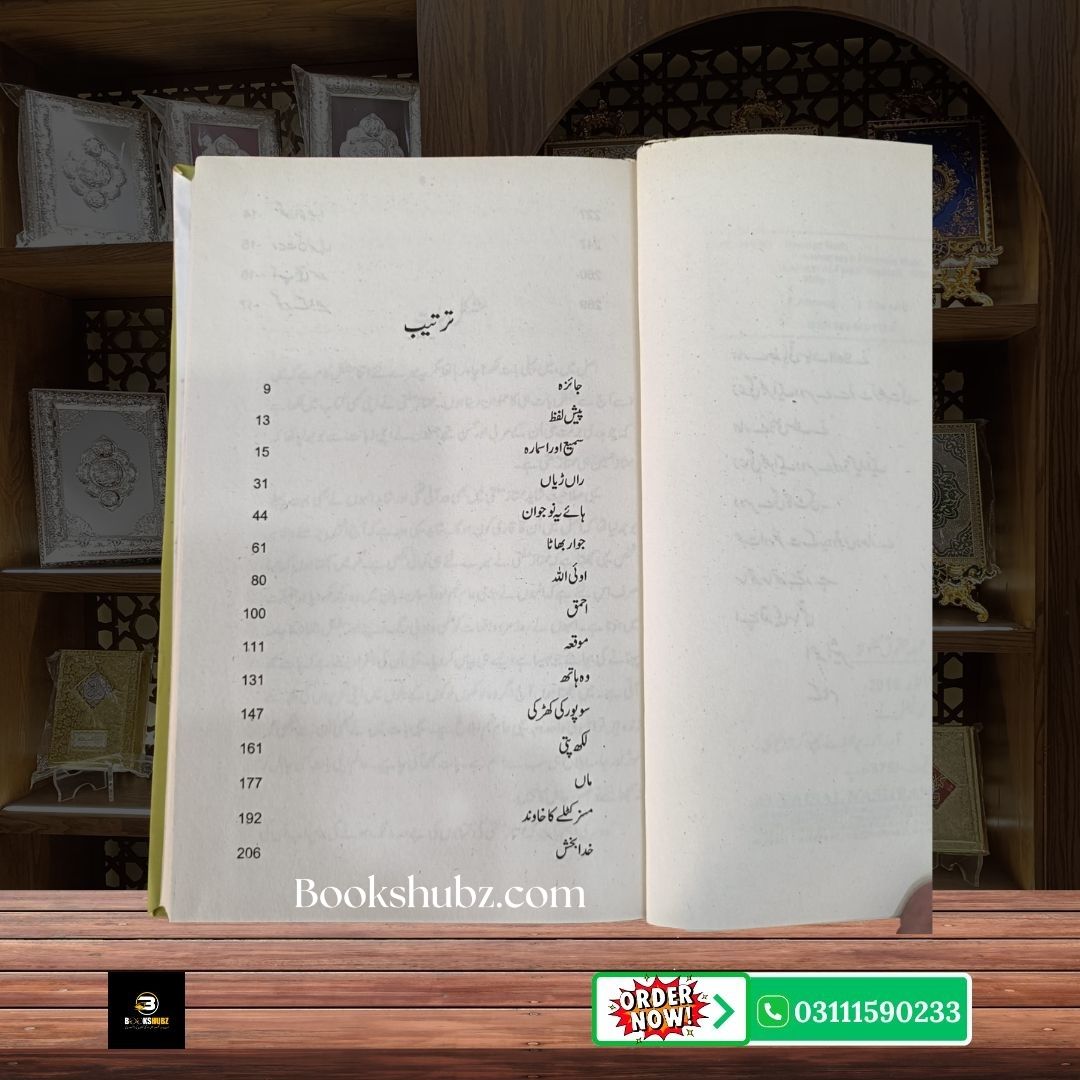 ترتیب
جائزہ 9
پیش لفظ 13
سمیع اور اسمارہ 15
راں ژیاں 31
ہائے یہ نوجوان 44
جوار بھاٹا 61
اوئی اللہ 80
احمق 100
موقعہ 111
وہ ہاتھ 131
سوپور کی کھڑکی 147
لکھ پتی 161
ماں 177
مسز کٹلے کا خاوند 192
خدا بخش 206
Bookshubz.com
BOOKSHUBZ
ORDER NOW!
03111590233